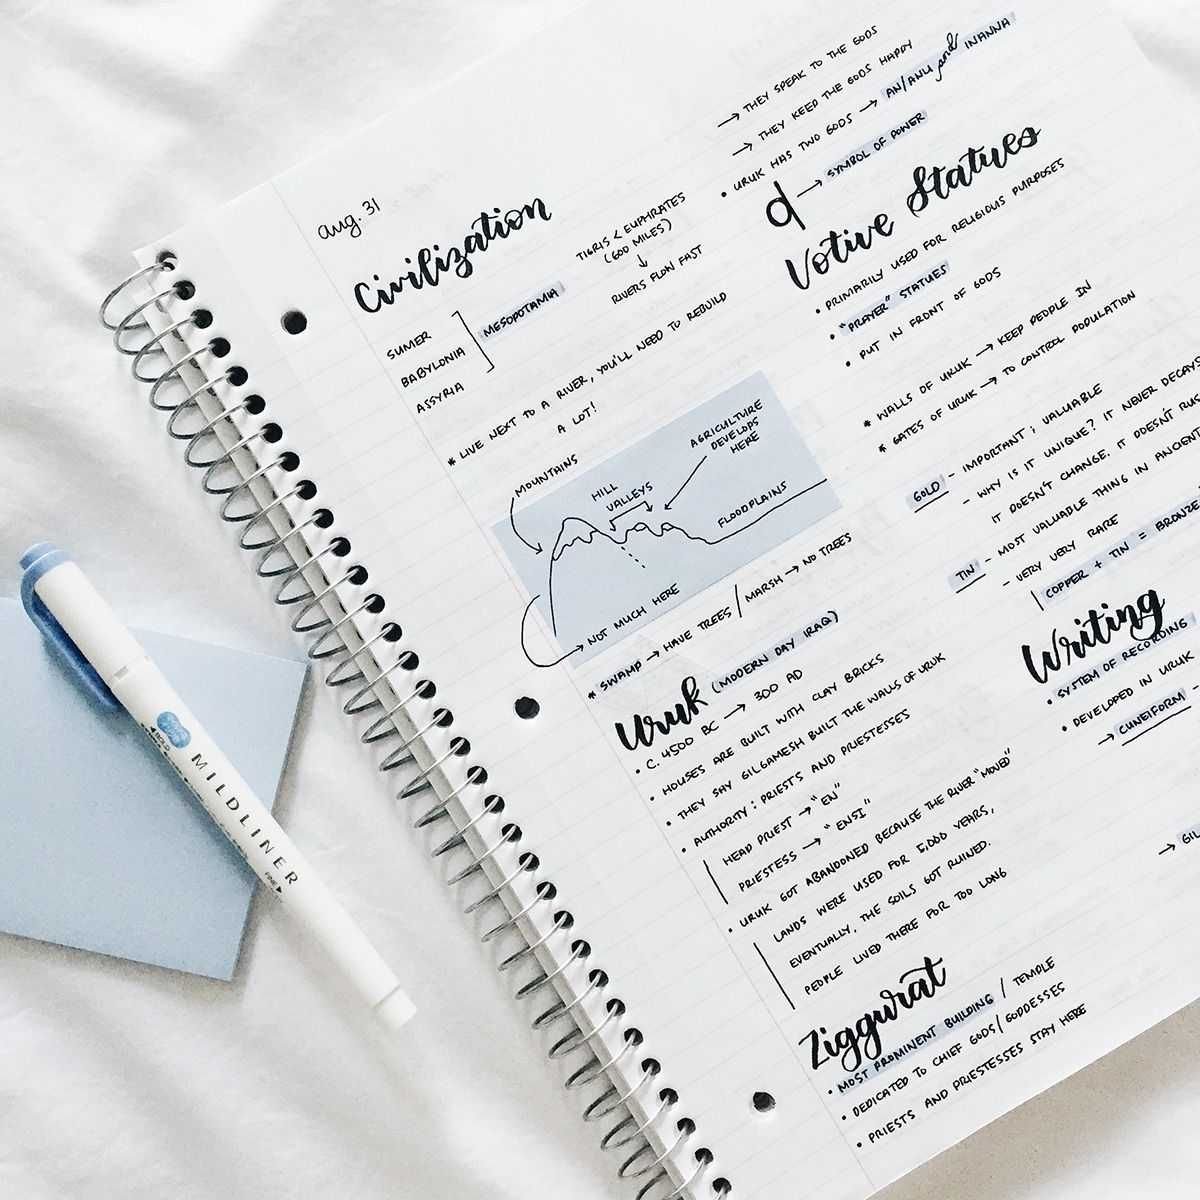 aug. 31
Civilization
SUMER
BABYLONIA
ASSYRIA
MESOPOTAMIA
TIGRIS & EUPHRATES
(600 MILES)
↓
RIVERS FLOW FAST
* LIVE NEXT TO A RIVER, YOU'LL NEED TO REBUILD
A LOT!
MOUNTAINS
HILL
VALLEYS
AGRICULTURE
DEVELOPS
HERE
FLOODPLAINS
NOT MUCH HERE
* SWAMP → HAVE TREES / MARSH → NO TREES
Uruk (MODERN DAY IRAQ)
• C. 4500 BC → 300 AD
• HOUSES ARE BUILT WITH CLAY BRICKS
• THEY SAY GILGAMESH BUILT THE WALLS OF URUK
• AUTHORITY: PRIESTS AND PRIESTESSES
HEAD PRIEST → "EN"
PRIESTESS → "ENSI"
• URUK GOT ABANDONED BECAUSE THE RIVER "MOVED"
LANDS WERE USED FOR 5,000 YEARS,
EVENTUALLY, THE SOILS GOT RUINED.
PEOPLE LIVED THERE FOR TOO LONG
Ziggurat
• MOST PROMINENT BUILDING / TEMPLE
• DEDICATED TO CHIEF GODS/GODDESSES
• PRIESTS AND PRIESTESSES STAY HERE
→ THEY SPEAK TO THE GODS
→ THEY KEEP THE GODS HAPPY
• URUK HAS TWO GODS → AN/ANU and INANNA
→ SYMBOL OF POWER
Votive Statues
• PRIMARILY USED FOR RELIGIOUS PURPOSES
• "PRAYER" STATUES
• PUT IN FRONT OF GODS
* WALLS OF URUK → KEEP PEOPLE IN
* GATES OF URUK → TO CONTROL POPULATION
GOLD - IMPORTANT; VALUABLE
- WHY IS IT UNIQUE? IT NEVER DECAYS
IT DOESN'T CHANGE. IT DOESN'T
TIN - MOST VALUABLE THING IN ANCIENT
- VERY VERY RARE
COPPER + TIN = BRONZE
Writing
• SYSTEM OF RECORDING
• DEVELOPED IN URUK
→ CUNEIFORM -
MILDLINER
BOLD
FINE